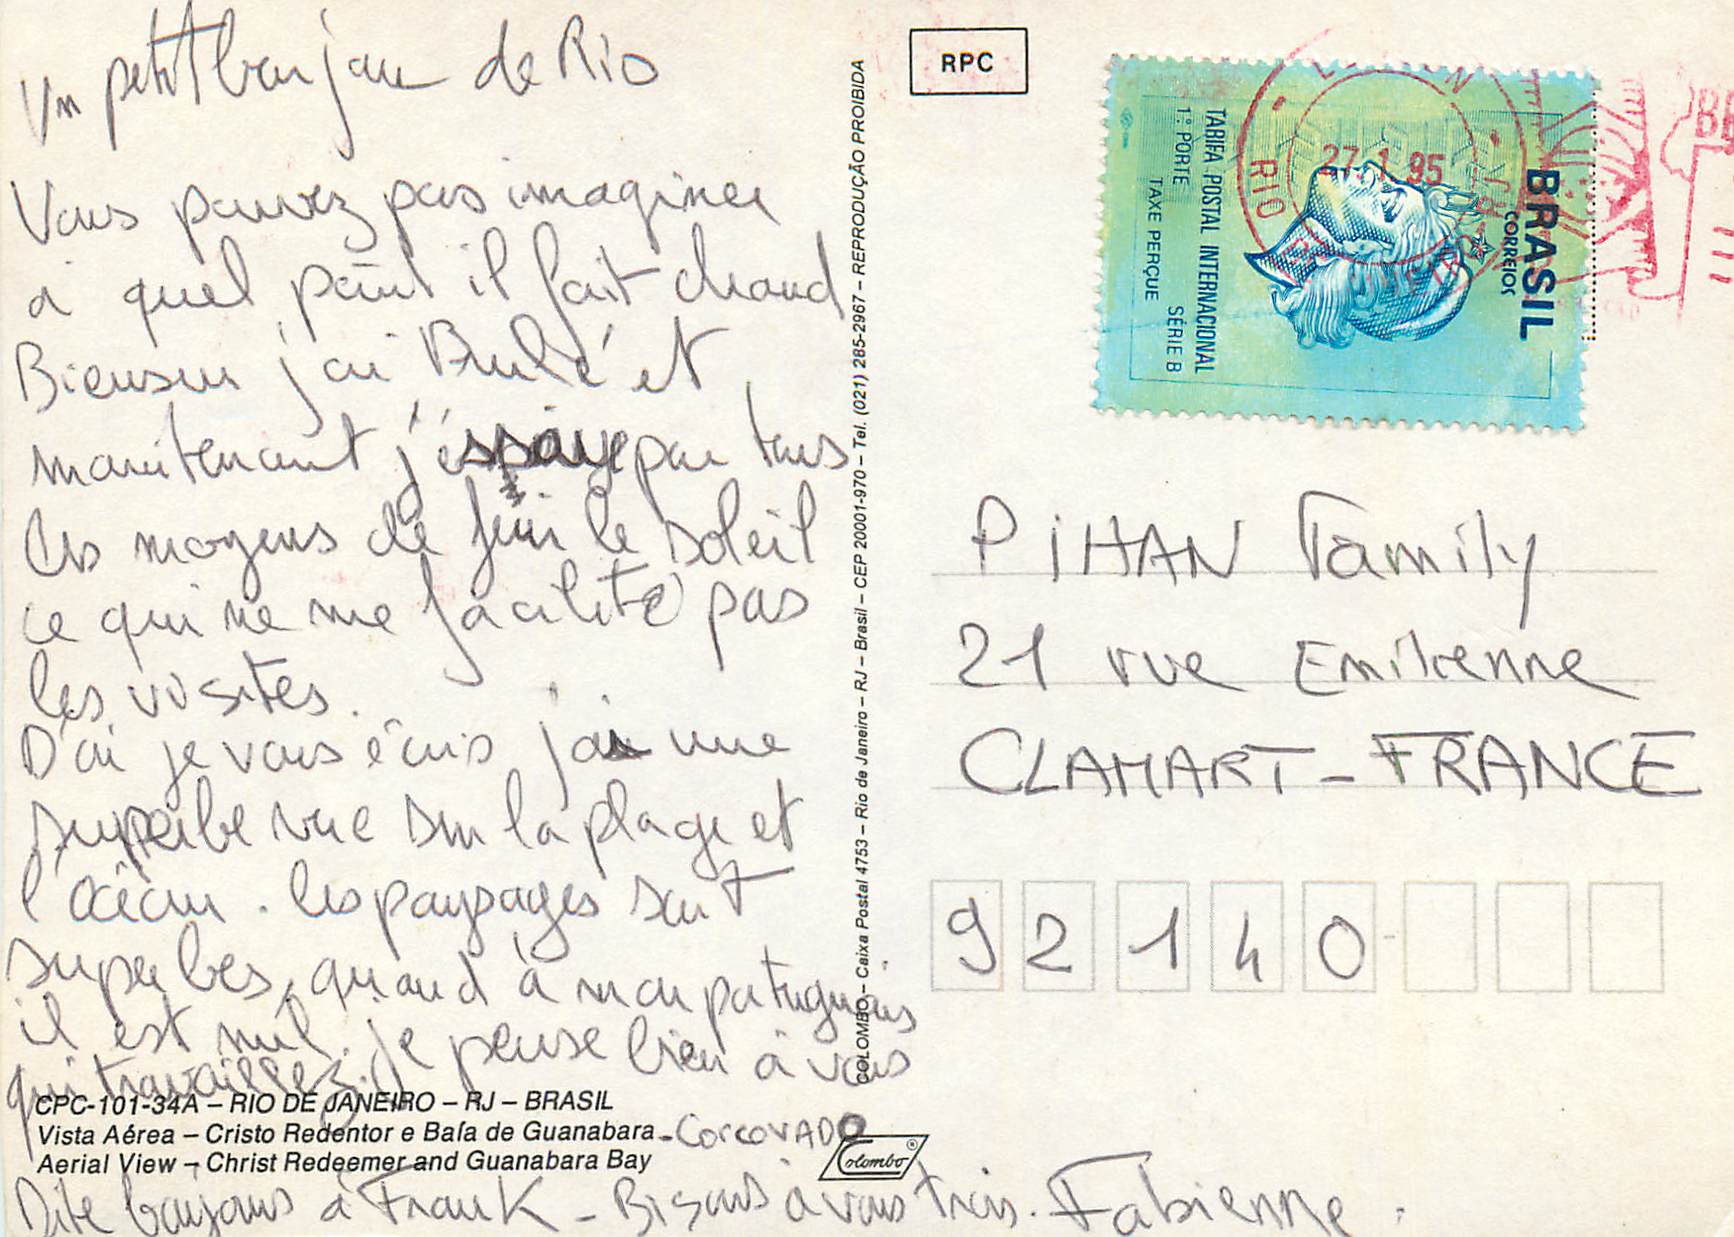 Un petit bonjour de Rio
Vous pouvez pas imaginer
a quel point il fait chaud
Biensur j'ai Brulé et
maintenant j'éssaye par tous
les moyens de fuir le soleil
ce qui ne me facilite pas
les visites.
D'ou je vous écris j'ai une
superbe vue sur la plage et
l'océan. les paysages sont
superbes, quand à mon portuguais
il est nul. je pense bien à vous
qui travaillez.
CPC-101-34A – RIO DE JANEIRO – RJ – BRASIL
Vista Aérea – Cristo Redentor e Baía de Guanabara - CORCOVADO
Aerial View – Christ Redeemer and Guanabara Bay
Colombo ®
Dite bonjours à Franck - Bisous à vous trois. Fabienne.
COLOMBO – Caixa Postal 4753 – Rio de Janeiro – RJ – Brasil – CEP 20001-970 – Tel. (021) 285-2967 – REPRODUÇÃO PROIBIDA
RPC
BRASIL
CORREIOS
TARIFA POSTAL INTERNACIONAL
1º PORTE SÉRIE B
TAXE PERÇUE
27.1.95
RIO
PIHAN Family
21 rue Emilienne
CLAMART - FRANCE
92140